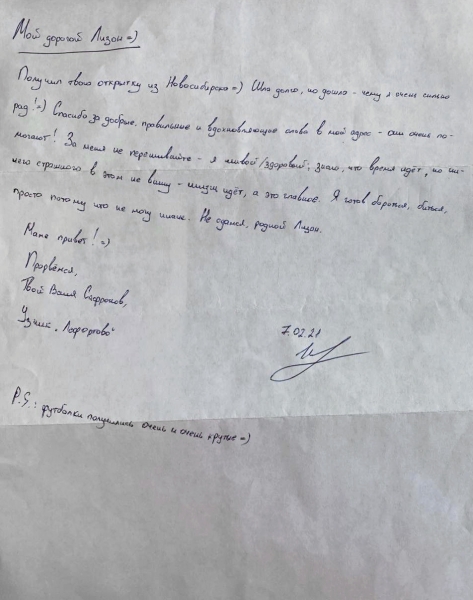 Мой дорогой Лизон =)
Получил твою открытку из Новосибирска =) Шла долго, но дошла - чему я очень сильно
рад! =) Спасибо за добрые, правильные и вдохновляющие слова в мой адрес - они очень по-
могают! За меня не переживайте - я живой/здоровый; знаю, что время идёт, но ни-
чего страшного в этом не вижу - жизнь идёт, а это главное. Я готов бороться, биться,
просто потому что не могу иначе. Не сдамся, родной Лизон.
Маме привет! =)
Прорвёмся,
Твой Ваня Сафронов,
Узник "Лефортово"
7.02.21
P.S.: футболки получились очень и очень крутые =)